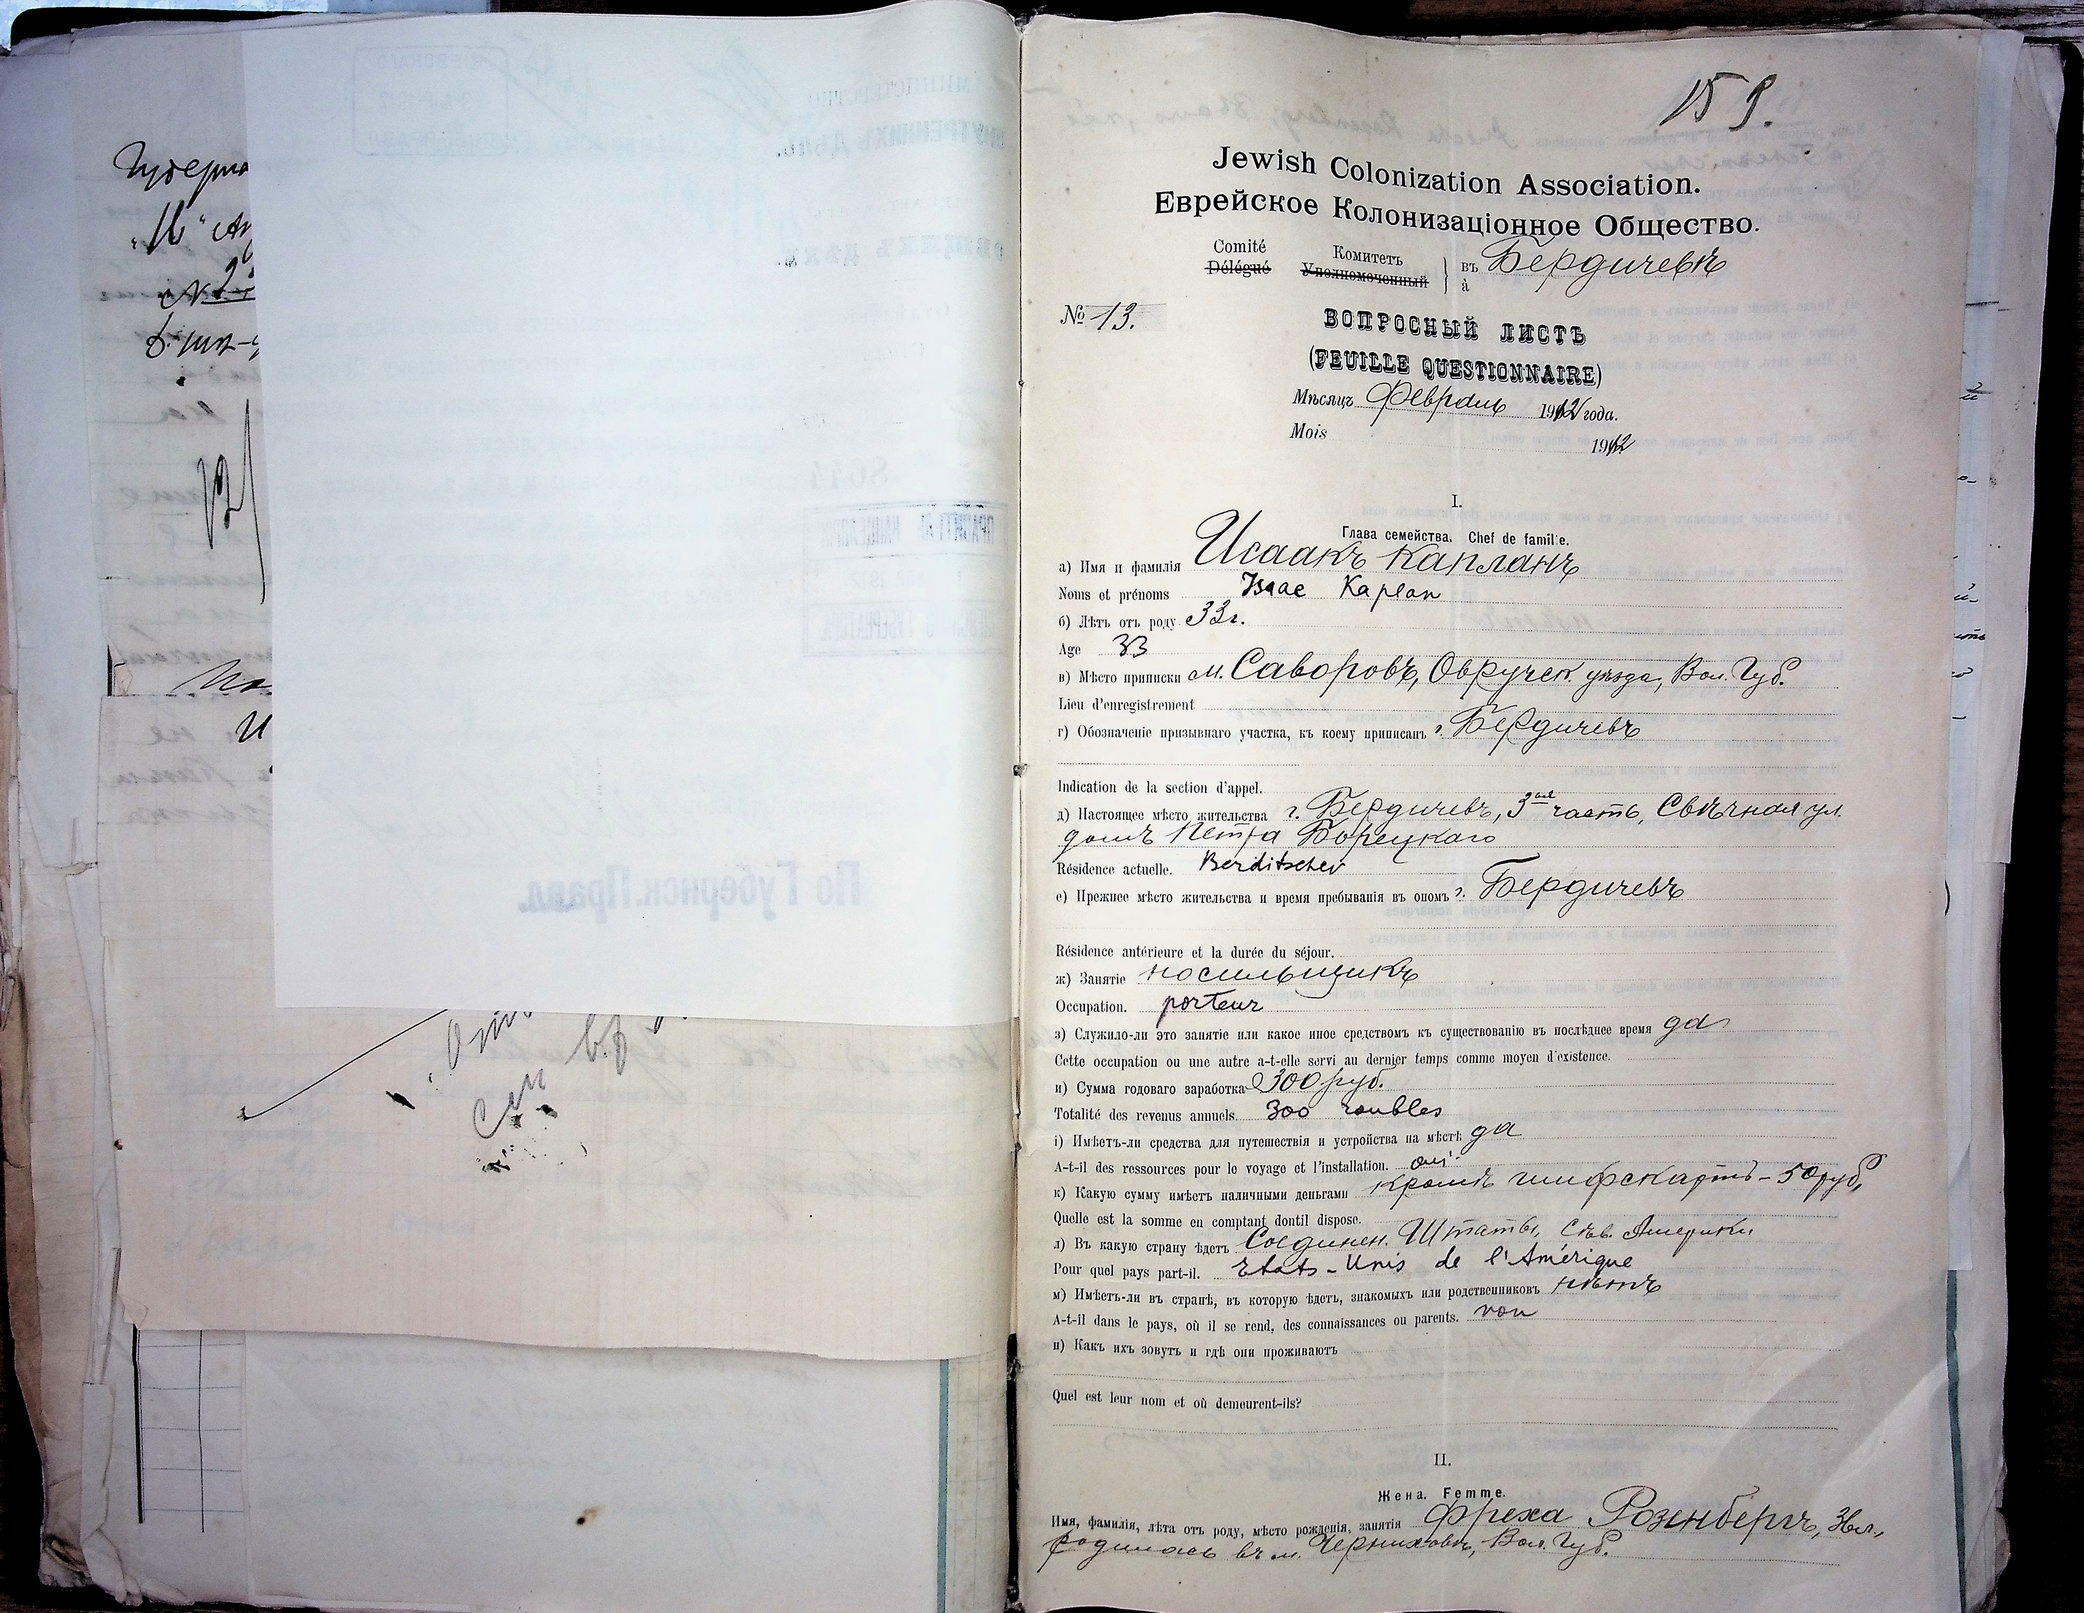 159.
Jewish Colonization Association.
Еврейское Колонизаціонное Общество.
Comité Комитетъ въ Бердичевѣ
Délégué Уполномоченный à
№ 13.
ВОПРОСНЫЙ ЛИСТЪ
(FEUILLE QUESTIONNAIRE)
Мѣсяцъ Февраль 1912 года.
Mois 1912
I.
Глава семейства. Chef de famille.
а) Имя и фамилія Исаакъ Капланъ
Noms et prénoms Isaac Kaplan
б) Лѣтъ отъ роду 33 г.
Age 33
в) Мѣсто приписки м. Саворовъ, Овручск. уѣзда, Вол. Губ.
Lieu d'enregistrement
г) Обозначеніе призывнаго участка, къ коему приписанъ г. Бердичевъ
Indication de la section d'appel.
д) Настоящее мѣсто жительства г. Бердичевъ, 3ая часть, Свѣчная ул.
домъ Петра Борецкаго
Résidence actuelle. Berditschev
е) Прежнее мѣсто жительства и время пребыванія въ ономъ г. Бердичевъ
Résidence antérieure et la durée du séjour.
ж) Занятіе носильщикъ
Occupation. porteur
з) Служило-ли это занятіе или какое иное средствомъ къ существованію въ послѣднее время да
Cette occupation ou une autre a-t-elle servi au dernier temps comme moyen d'existence.
и) Сумма годоваго заработка 300 руб.
Totalité des revenus annuels. 300 roubles
і) Имѣетъ-ли средства для путешествія и устройства на мѣстѣ да
A-t-il des ressources pour le voyage et l'installation. oui
к) Какую сумму имѣетъ наличными деньгами кромѣ шифскартъ - 50 руб,
Quelle est la somme en comptant dontil dispose.
л) Въ какую страну ѣдетъ Соединен. Штаты, Сѣв. Америки
Pour quel pays part-il. Etats-Unis de l'Amérique
м) Имѣетъ-ли въ странѣ, въ которую ѣдетъ, знакомыхъ или родственниковъ нѣтъ
A-t-il dans le pays, où il se rend, des connaissances ou parents. non
н) Какъ ихъ зовутъ и гдѣ они проживаютъ
Quel est leur nom et où demeurent-ils?
II.
Жена. Femme.
Имя, фамилія, лѣта отъ роду, мѣсто рожденія, занятія Фреха Розенбергъ,
родилась въ м. Черниховѣ, Вол. Губ.